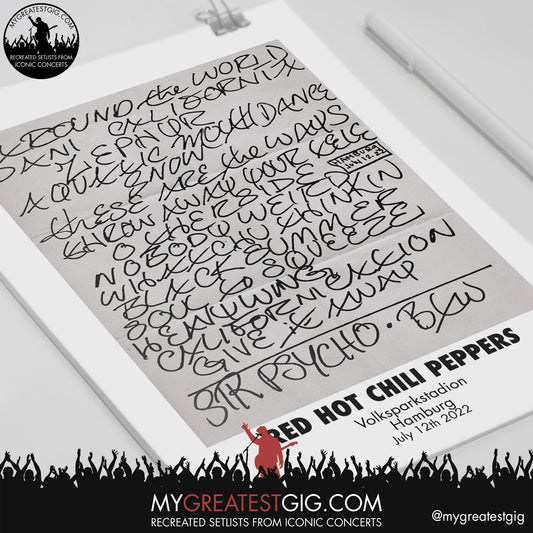 MYGREATESTGIG.COM
RECREATED SETLISTS FROM
ICONIC CONCERTS
AROUND the WORLD
DANI CALIFORNIA
ZEPHYR
AQUATIC MOUTH DANCE
SNOW
these ARE the WAYS
THROW AWAY YOUR TELE
HAMBURG
July 12.22
OTHERSIDE
NOBODY WEIRD
WHATCHU THINKIN
BLACK SUMMER
SOUL 2 SQUEEZE
HEAVY WING
CALIFORNICATION
GIVE it AWAY
SIR PSYCHO · BSW
RED HOT CHILI PEPPERS
Volksparkstadion
Hamburg
July 12th 2022
MYGREATESTGIG.COM
RECREATED SETLISTS FROM ICONIC CONCERTS
@mygreatestgig